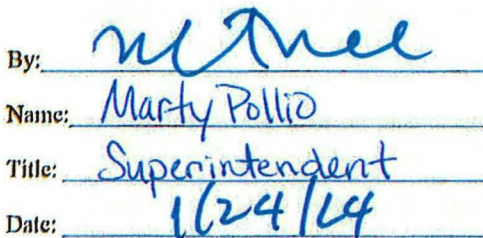 By:
Name: Marty Pollio
Title: Superintendent
Date: 1/24/24